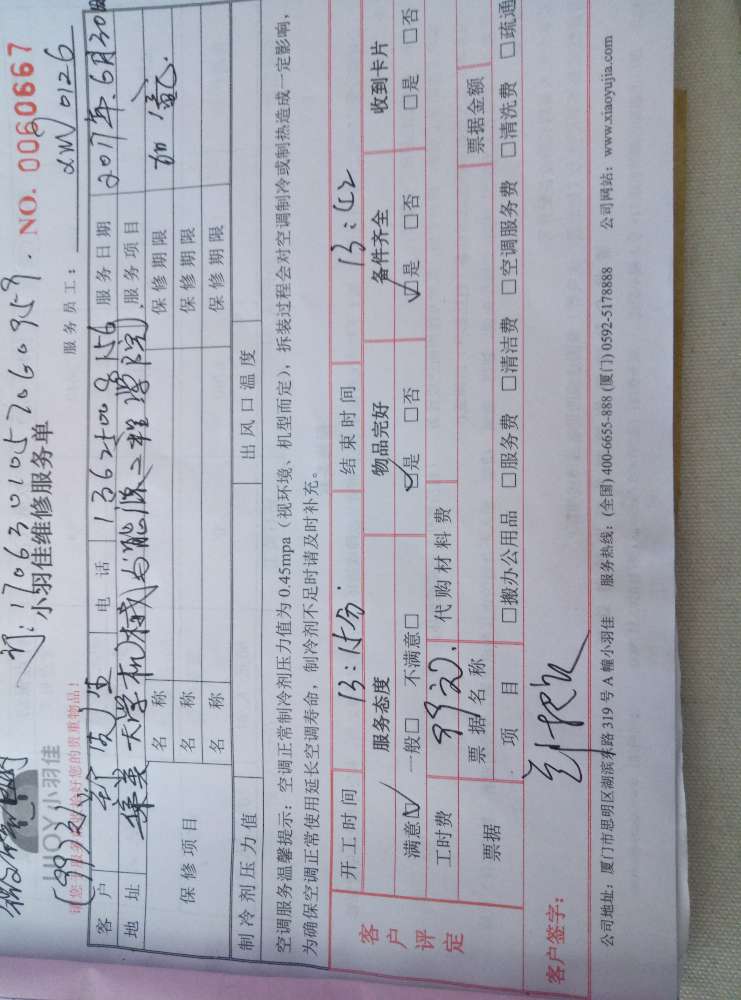 订:1706301052060959.
小羽佳维修服务单
NO. 0060667
(99元)
小羽佳
服务员工: XM 0126
客户 先生 电话 13625009156 服务日期 2017年.6月30日
地址 集美大学机械与能源工程学院. 服务项目 加氟.
保修项目 名称 保修期限
名称 保修期限
名称 保修期限
制冷剂压力值 出风口温度
空调服务温馨提示:空调正常制冷剂压力值为0.45mpa(视环境、机型而定),拆装过程会对空调制冷或制热造成一定影响,
为确保空调正常使用延长空调寿命,制冷剂不足时请及时补充。
客户评定
开工时间 13:15分 结束时间
服务态度 物品完好 备件齐全 收到卡片
满意☑ 一般□ 不满意□ ☑是 □否 ☑是 □否 □是 □否
工时费 99元. 代购材料费
票据 票据名称 票据金额
项目 □搬办公用品 □服务费 □清洁费 □空调服务费 □清洗费 □疏通
客户签字:
公司地址:厦门市思明区湖滨东路319号A幢小羽佳 服务热线:(全国)400-6655-888 (厦门)0592-5178888 公司网站:www.xiaoyujia.com